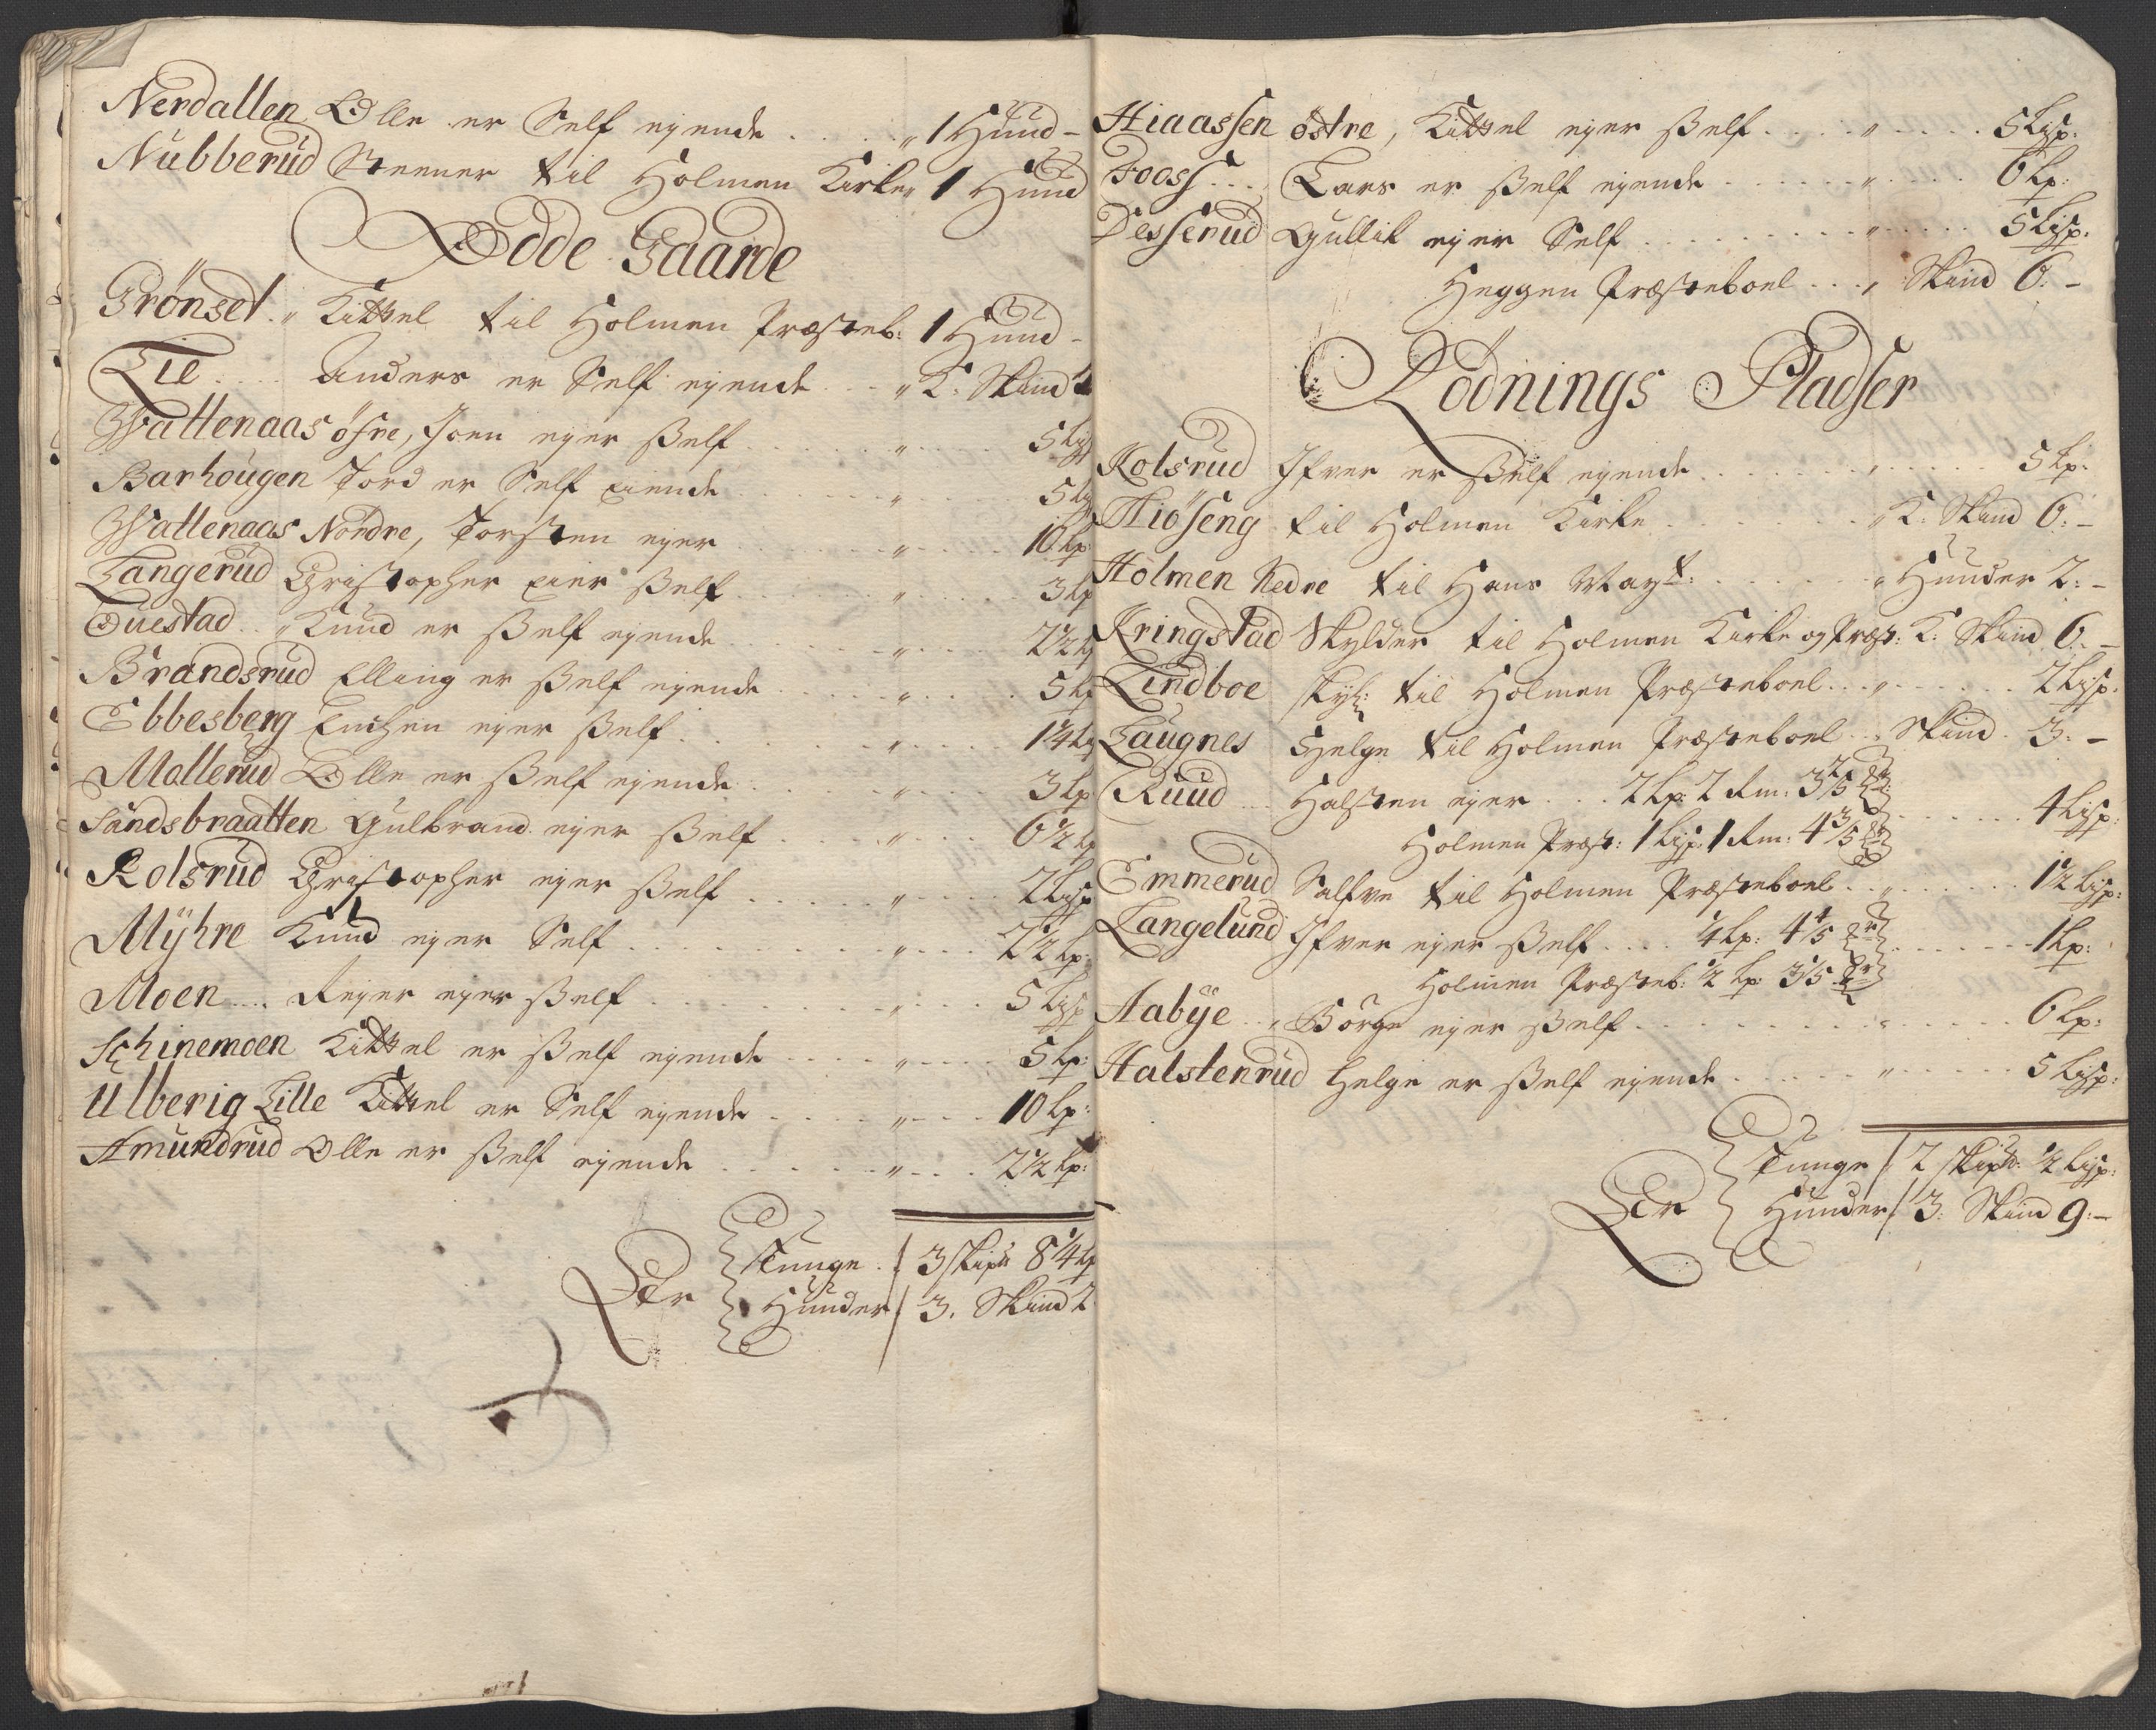 Nerdallen Olle er Self ejende . . . . . „ 1 Huud –
Nubberud Steener til Holmen Kirke „ 1 Huud
Ødde Gaarde
Grönset „ Kittel til Holmen Præsteb: 1 Huud –
Lie . . . . Anders er Self ejende . . . „ K: Skind 2
Wattenaas öfre, Joen ejer Self . . . . „ . . . . 5 Lisp
Barhougen Tord er Self eiende . . . . „ . . . . 5 Lisp
Wattenaas Nordre, Torsten ejer . . . . „ . . . . 10 Lp
Langerud Christopher eier Self . . . . „ . . . . 3 Lp
Questad . . „ Knud er Self ejende . . . . „ . . . . 2½ Lp
Brandsrud Elling er Self ejende . . . . „ . . . . 5 Lp
Ebbesberg ejer Self . . . . „ . . . . 1¼ Lp
Mollerud Olle er Self ejende . . . . „ . . . . 3 Lp
Sandsbraatten Gulbrand ejer Self . . . . „ . . . . 6½ Lp
Rolsrud Christopher ejer Self . . . . „ . . . . 2 Lisp
Mÿhre Knud ejer Self . . . . „ . . . . 2½ Lp:
Moen . . . . Rejer ejer Self . . . . „ . . . . 5 Lisp
Schinemoen Kittel er Self ejende . . . . „ . . . . 5 Lp:
Ulberig Lille Kittel er Self ejende . . . . „ . . . 10 Lp:
Amundrud Olle er Self ejende . . . . „ . . . 2½ Lp:
Er Tunge . / 3 Skipd 8¼ Lp
Huuder / 3. Skind 2
Hiaassen östre, Kittel ejer Self . . . . „ . . . . 5 Lisp:
Fooss . . . Lars er Self ejende . . . . „ . . . . 6 Lp:
Desserud Gullik ejer Self . . . . „ . . . . 5 Lisp:
Heggen Præsteboel . . . „ Skind 6: –
Rödnings Pladser
Rolsrud Ifver er Self ejende . . . . „ . . . . 5 Lp:
Hiöseng til Holmen Kirke . . . . „ K: Skind 6: –
Holmen Nedre til Hans Mayt: . . . . „ Huuder 2: –
Kringstad Skylder til Holmen Kirke og Præst: K: Skind 6. –
Lindboe skyl: til Holmen Præsteboel . . . „ . . . . 2 Lisp:
Laugnes Helge til Holmen Præsteboel . . „ Skind . 3: –
Ruud . . . Halsten ejer . . . 2 Lp: 2 Rm: 3 2/5
Holmen Præst: 1 Lisp: 1 Rm: 4 3/5 . . . . 4 Lisp:
Emmerud Salfve til Holmen Præsteboel . . „ . . . . 1½ Lisp:
Langelund Ifver ejer Self . . . . ¼ Lp: 4 4/5 . . . . 1 Lp:
Holmen Præsteb: ½ Lp: 3 1/5
Aabÿe . . „ Börge ejer Self . . . . „ . . . . 6 Lp:
Halstenrud Helge er Self ejende . . . . „ . . . . 5 Lisp:
Er Tunge / 2 Skipd: ½ Lisp:
Huuder / 3: Skind 9: –